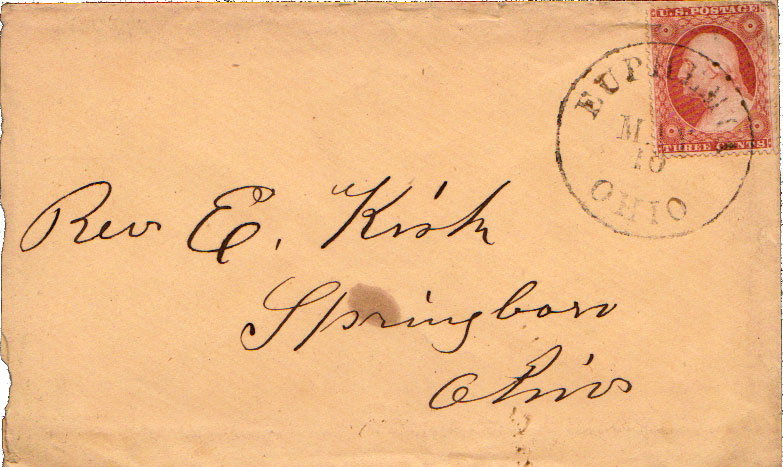 U.S. POSTAGE
THREE CENTS
EUPHEMIA
10
OHIO
Rev E. Kirk
Springboro
Ohio